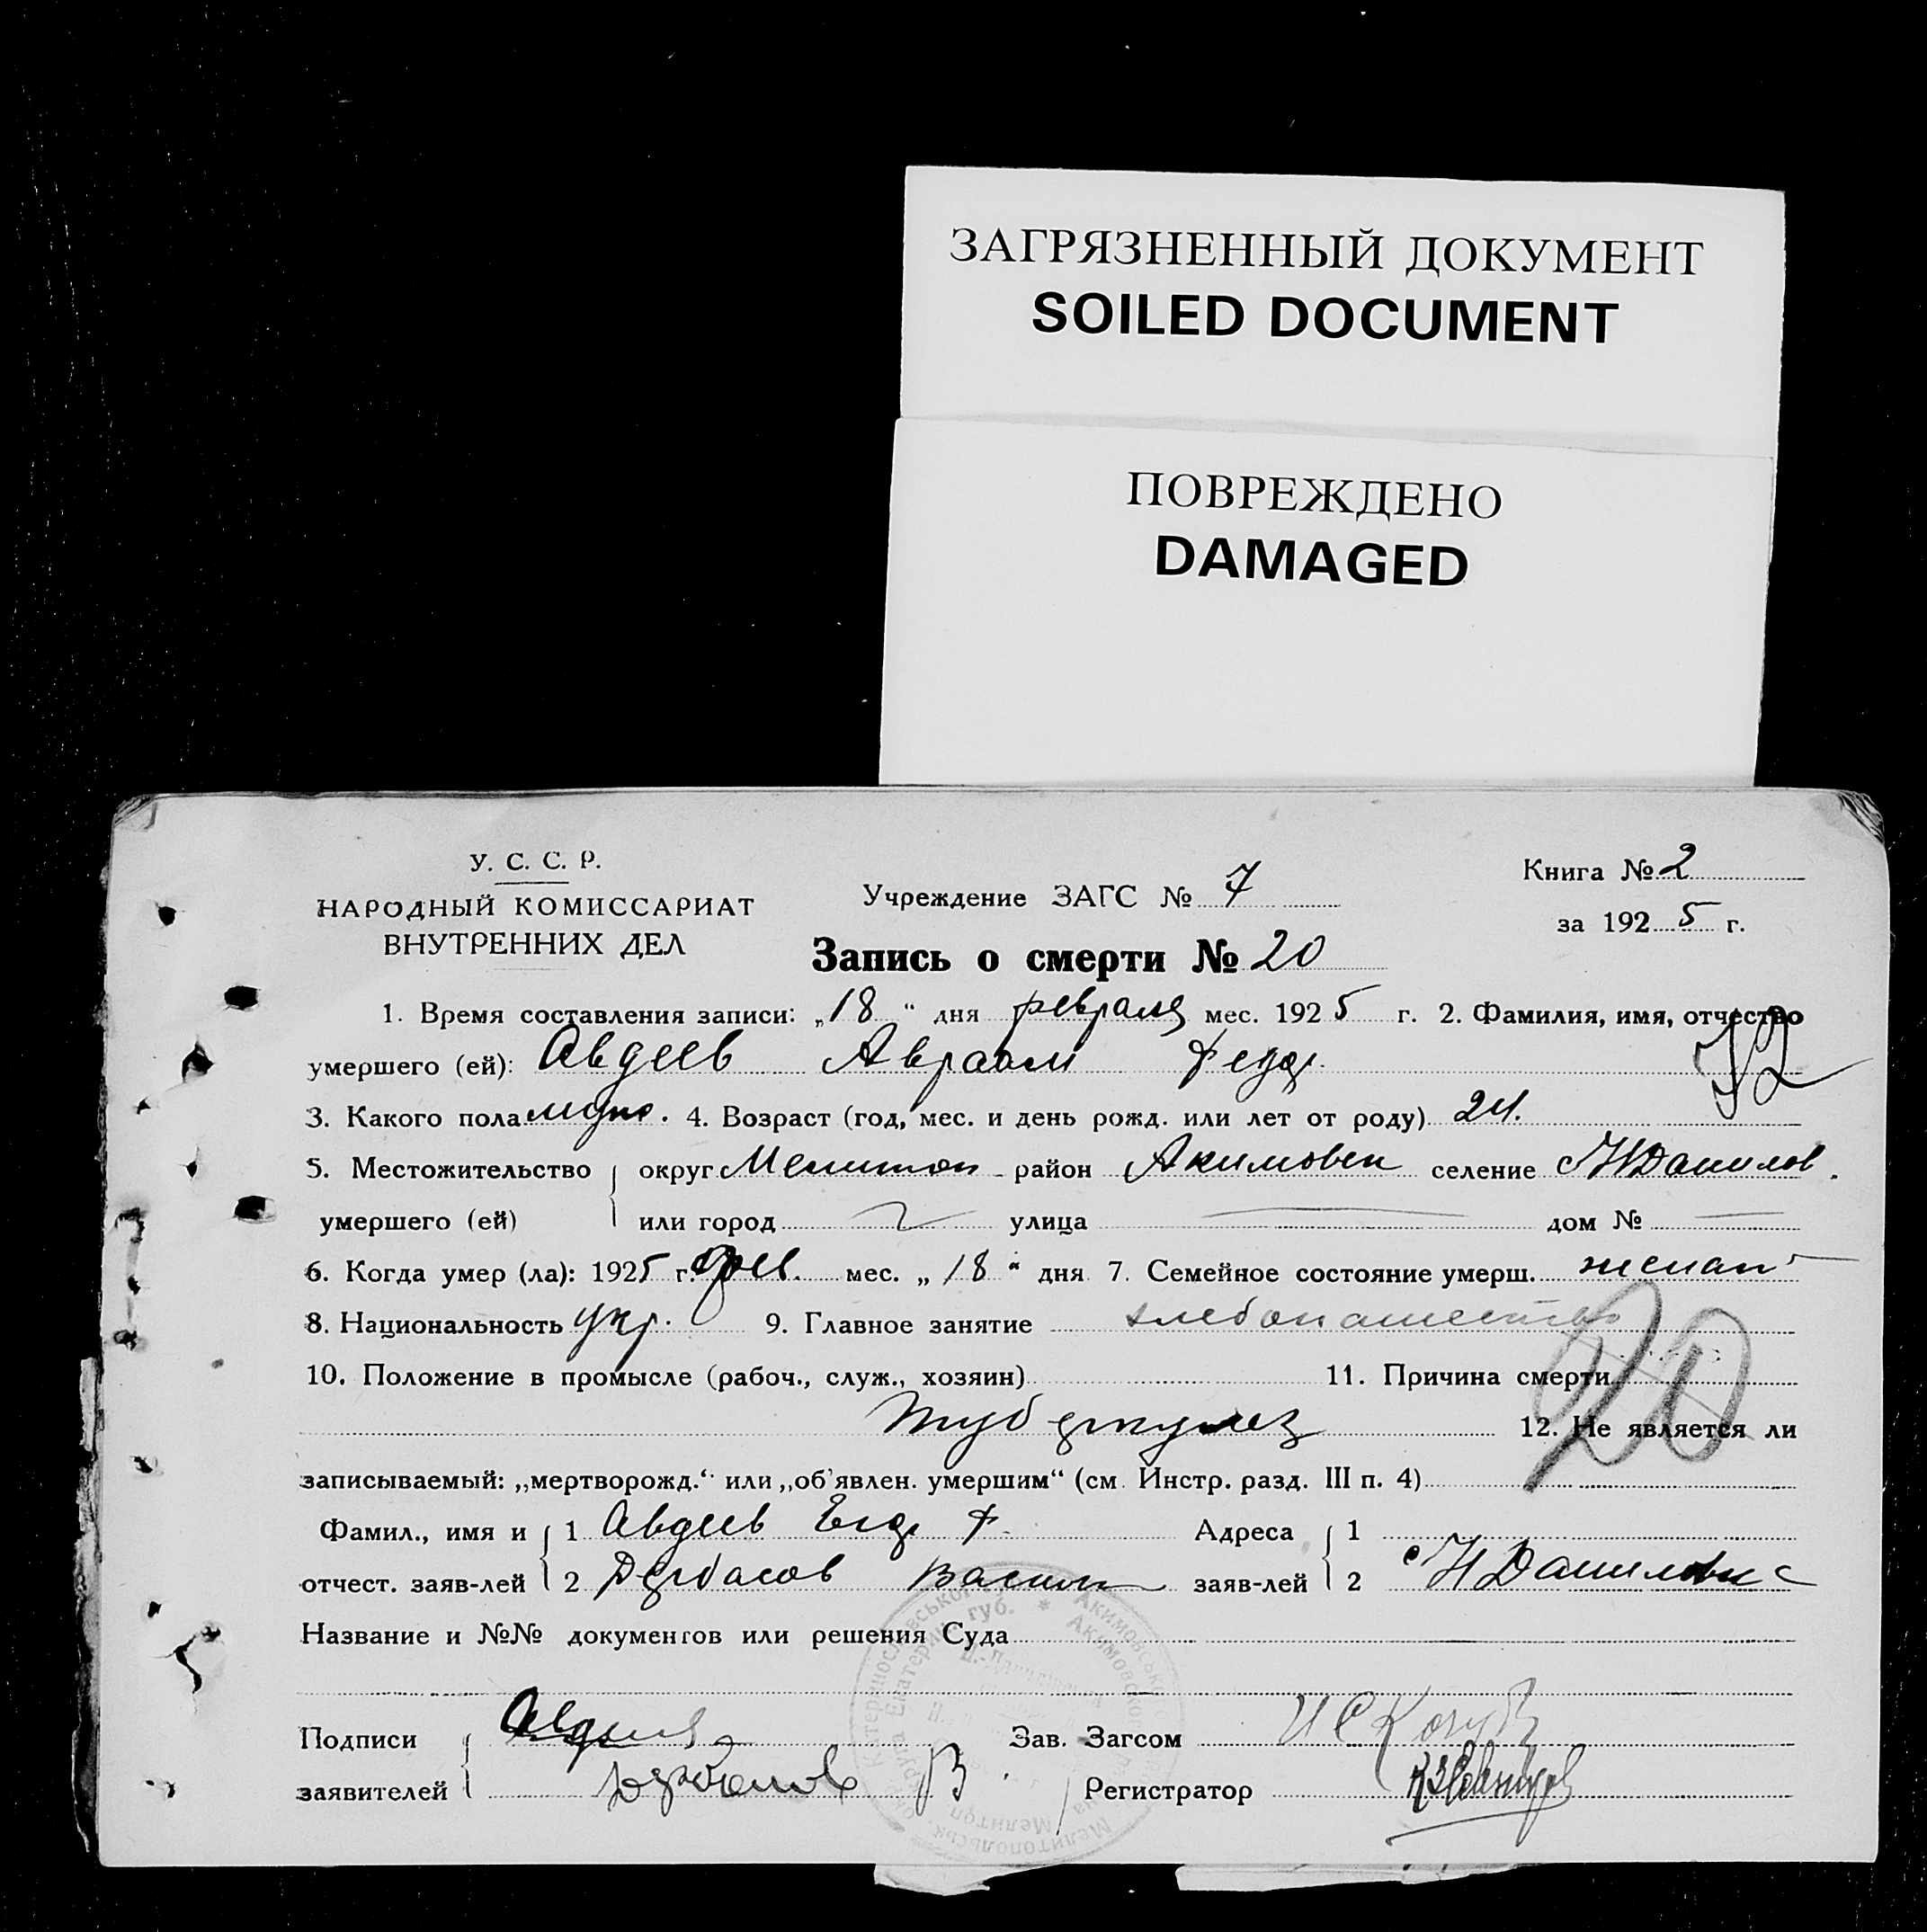 ЗАГРЯЗНЕННЫЙ ДОКУМЕНТ
SOILED DOCUMENT
ПОВРЕЖДЕНО
DAMAGED
У. С. С. Р.
НАРОДНЫЙ КОМИССАРИАТ
ВНУТРЕННИХ ДЕЛ
Учреждение ЗАГС № 7
Книга № 2
за 1925 г.
Запись о смерти № 20
1. Время составления записи: „18“ дня февраля мес. 1925 г. 2. Фамилия, имя, отчество
умершего (ей): Авдеев Авраам Федор.
3. Какого пола муж. 4. Возраст (год, мес. и день рожд. или лет от роду) 24.
5. Местожительство округ Мелитоп район Акимовск селение Н Данилов.
умершего (ей) или город улица дом №
6. Когда умер (ла): 1925 г. фев. мес. „18“ дня 7. Семейное состояние умерш. женат
8. Национальность укр. 9. Главное занятие хлебопашество
20
10. Положение в промысле (рабоч., служ., хозяин) 11. Причина смерти
туберкулез 12. Не является ли
записываемый: „мертворожд.“ или „об'явлен. умершим“ (см. Инстр. разд. III п. 4)
Фамил., имя и 1 Авдеев Егор Ф. Адреса 1
отчест. заяв-лей 2 Дербасов Васил заяв-лей 2 с Н Даниловк
Название и №№ документов или решения Суда
Подписи Авдеев Зав. Загсом
заявителей Дербасов В Регистратор